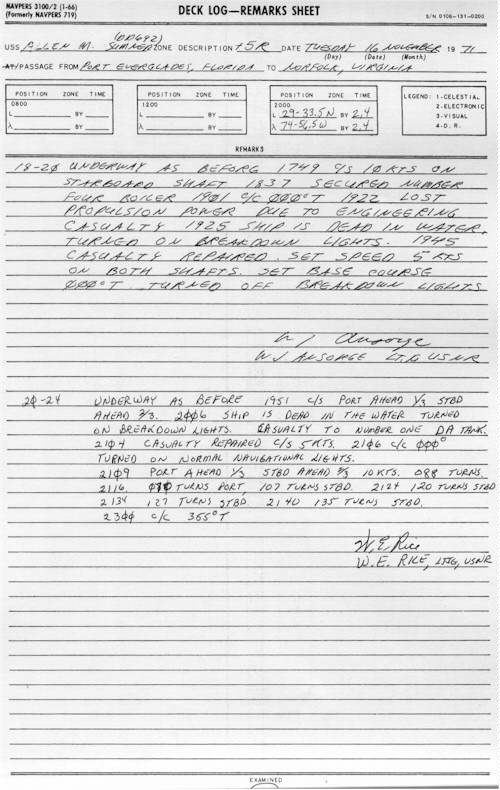 NAVPERS 3100/2 (1-66)
(Formerly NAVPERS 719)
DECK LOG—REMARKS SHEET
S/N 0106-131-0200
(DD692)
USS ALLEN M. SUMNER ZONE DESCRIPTION +5R DATE TUESDAY 16 NOVEMBER 1971
(Day) (Date) (Month)
AT/PASSAGE FROM PORT EVERGLADES, FLORIDA TO NORFOLK, VIRGINIA
POSITION ZONE TIME
0800
L BY
λ BY
POSITION ZONE TIME
1200
L BY
λ BY
POSITION ZONE TIME
2000
L 29-33.5N BY 2,4
λ 79-56.5W BY 2,4
LEGEND: 1-CELESTIAL
2-ELECTRONIC
3-VISUAL
4-D.R.
REMARKS
18-20 UNDERWAY AS BEFORE 1749 C/S 10 KTS ON
STARBOARD SHAFT 1837 SECURED NUMBER
FOUR BOILER 1901 C/C 000°T 1922 LOST
PROPULSION POWER DUE TO ENGINEERING
CASUALTY 1925 SHIP IS DEAD IN WATER.
TURNED ON BREAKDOWN LIGHTS. 1945
CASUALTY REPAIRED. SET SPEED 5 KTS
ON BOTH SHAFTS. SET BASE COURSE
000°T. TURNED OFF BREAKDOWN LIGHTS
W J Ansorge
W J ANSORGE LTJG USNR
20-24 UNDERWAY AS BEFORE 1951 C/S PORT AHEAD 1/3 STBD
AHEAD 2/3. 2006 SHIP IS DEAD IN THE WATER TURNED
ON BREAKDOWN LIGHTS. CASUALTY TO NUMBER ONE DA TANK.
2104 CASUALTY REPAIRED C/S 5 KTS. 2106 C/C 000°
TURNED ON NORMAL NAVIGATIONAL LIGHTS.
2109 PORT AHEAD 1/3 STBD AHEAD 2/3 10 KTS. 088 TURNS.
2116 TURNS PORT, 107 TURNS STBD. 2124 120 TURNS STBD
2134 127 TURNS STBD. 2140 135 TURNS STBD.
2300 C/C 355°T
W.E. Rice
W. E. RICE, LTJG, USNR
EXAMINED